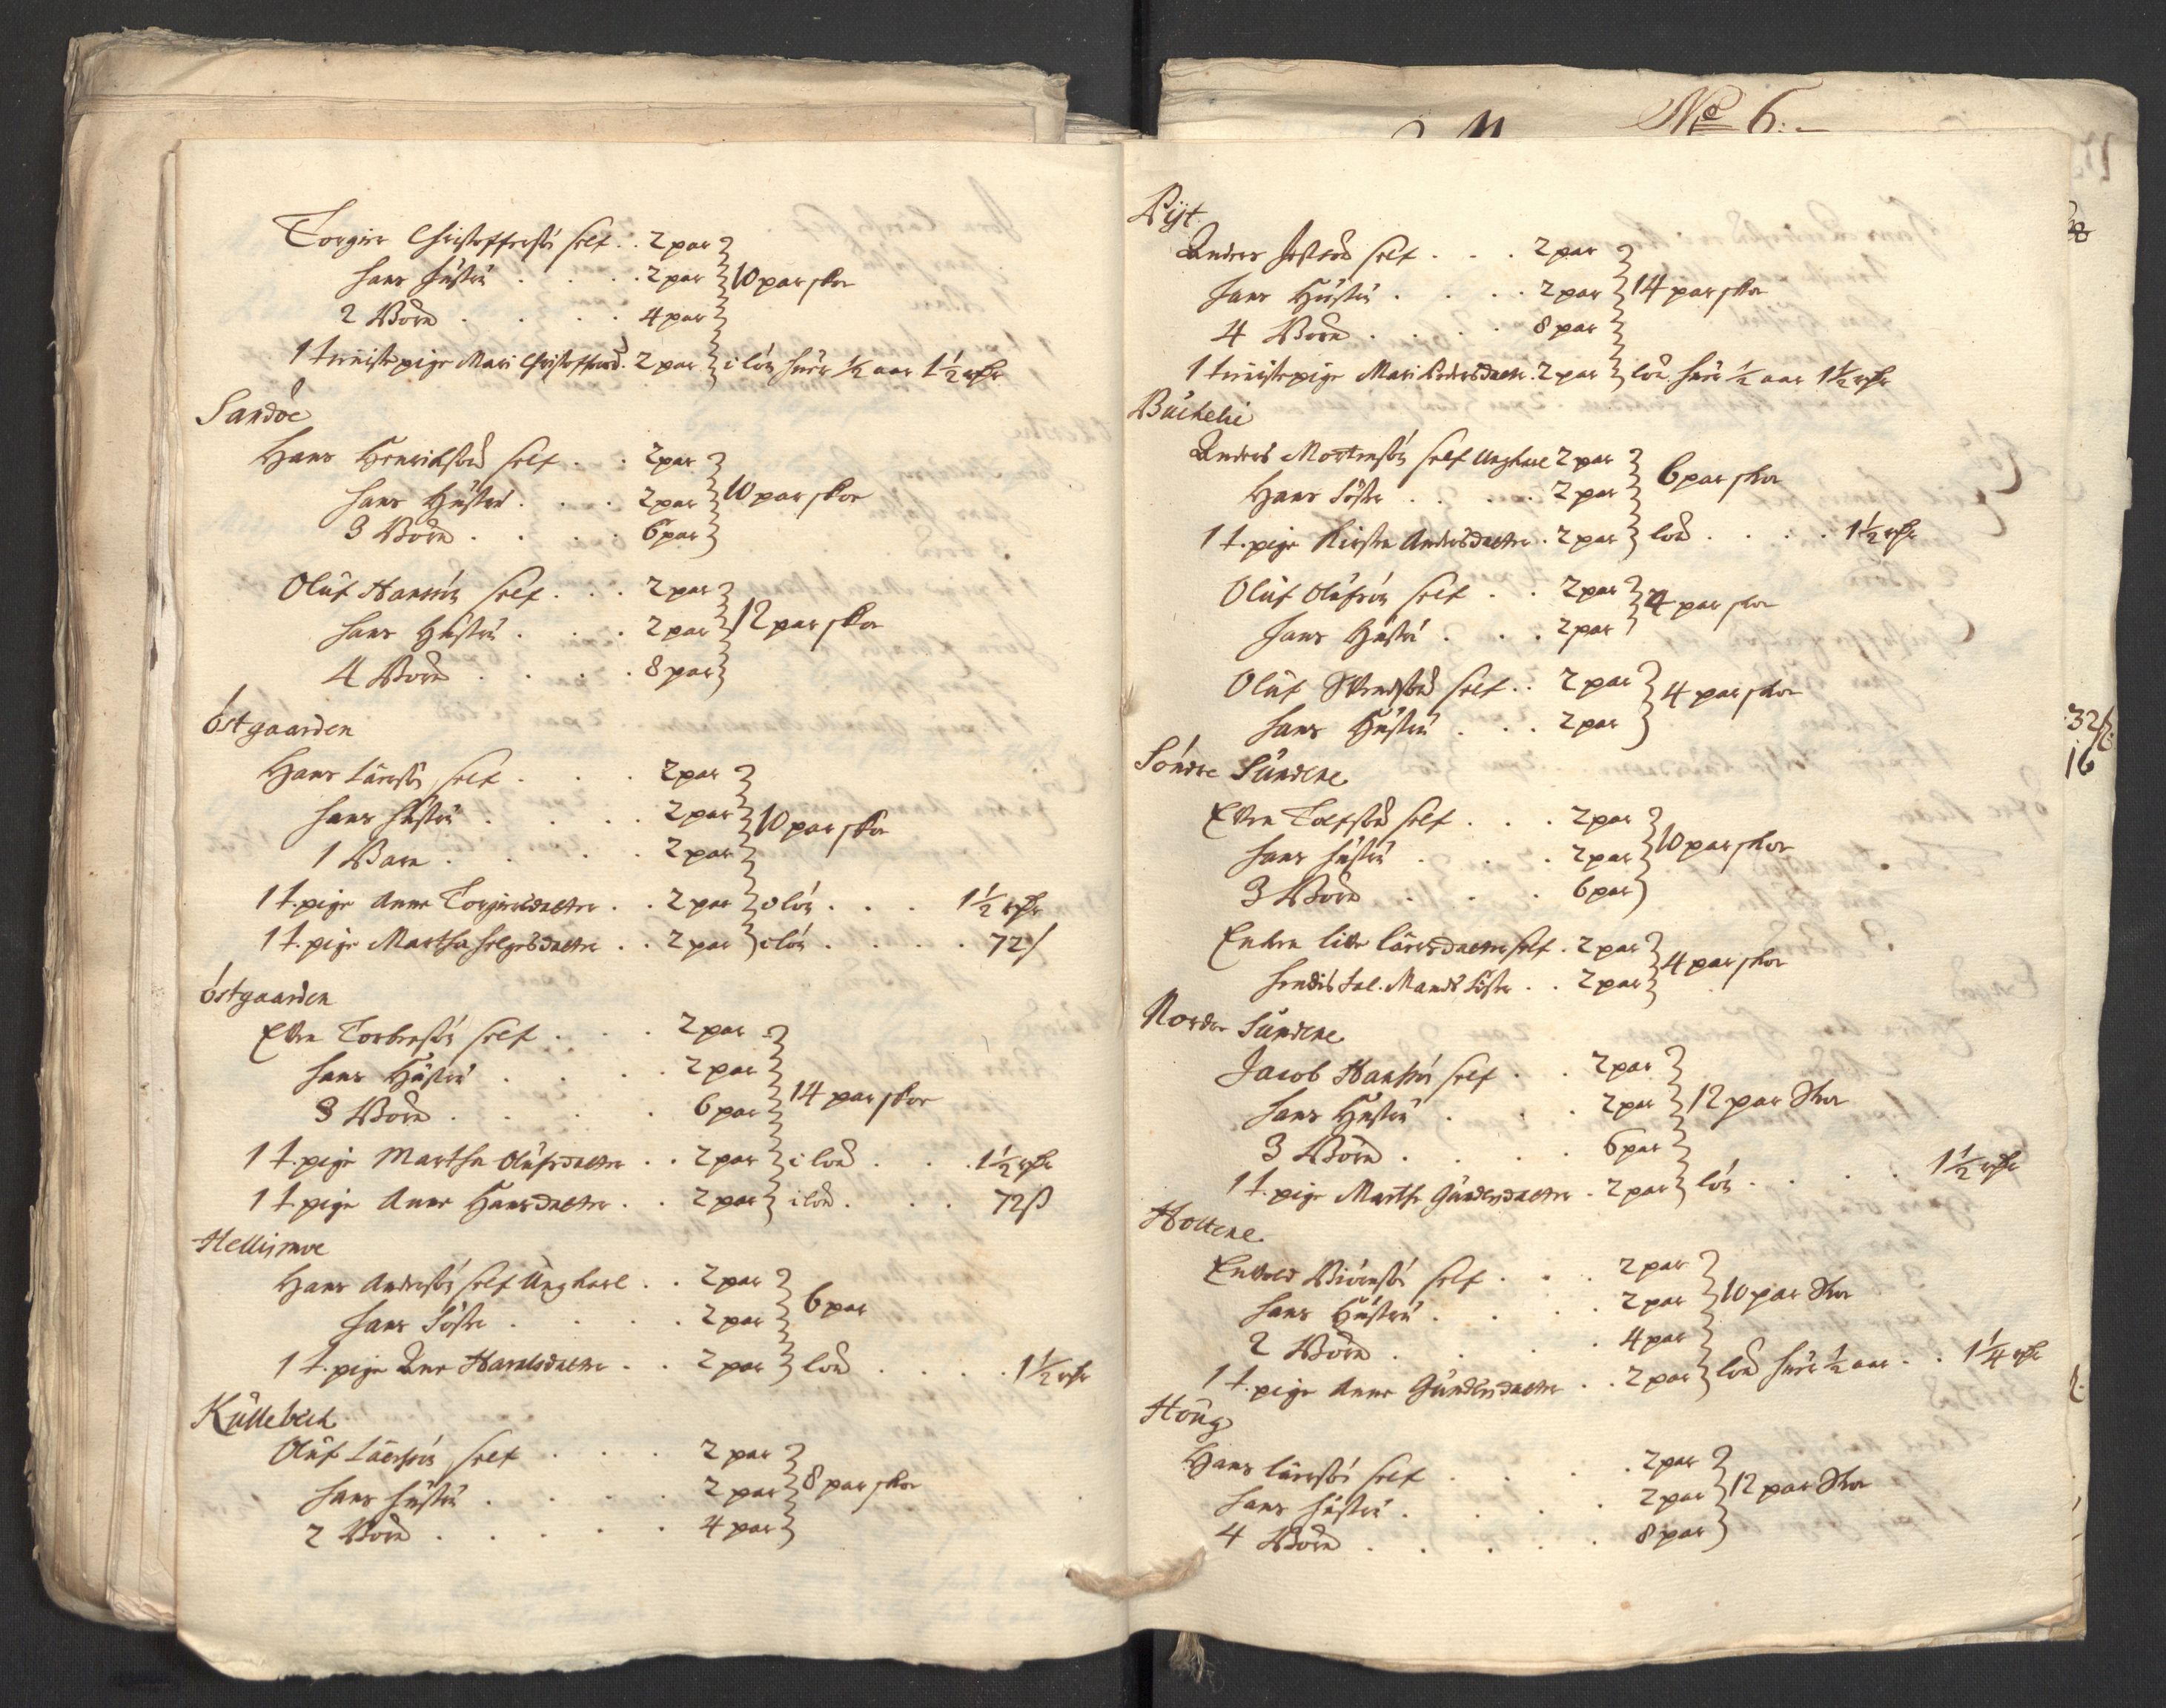 Torgier Christoffersön self . . 2 par
hans hüstrü . . . . 2 par } 10 par skoe
2 Börn . . . . 4 par
1 tieniste pige Mari Christoffersd. 2 par } i lön huer ½ aar 1½ rdr
Sandöe
Hans Henrichsön self . . 2 par
hans Hüstrü . . . 2 par } 10 par skoe
3 Börn . . . . 6 par
Olüf Hansön self . . . 2 par
hans Hüstrü . . . 2 par } 12 par skoe
4 Börn . . . . 8 par
Östgaarden
Hans Lärssön self . . . 2 par
hans hüstrü . . . . 2 par } 10 par skoe
1 Barn . . . . 2 par
1 t. pige Anne Torgiersdaatter . . 2 par } i lön . . . 1½ rdr
1 t. pige Martha helgesdaatter . . 2 par } i lön . . . . 72 ß
Östgaarden
Ellen Torbensön self . . . 2 par
hans Hüstrü . . . . 2 par } 14 par skoe
3 Börn . . . . 6 par
1 t. pige Martha Olüfsdaatter . . 2 par } i lön . . . 1½ rdr
1 t. pige Anne Hansdaatter . . 2 par } i lön . . . 72 ß
Hellismoe
Hans Andersön self Ungkarl . . 2 par
hans Söster . . . . 2 par } 6 par
1 t. pige Ane Haraldsdaatter . . 2 par } lön . . . . 1½ rdr
Küllebech
Olüf Lärssön self . . . 2 par
hans hüstrü . . . . 2 par } 8 par skoe
2 Börn . . . . . 4 par
No 6:-
Ryt
Anders Jostsön self . . . 2 par
hans Hüstrü . . . . 2 par } 14 par skoe
4 Börn . . . . 8 par
1 tieniste pige Mari Andersdaatter. 2 par } lön huer ½ aar 1½ rdr
Büchelie
Anders Mortensön self Ungkarl 2 par
Hans Söster . . . . 2 par } 6 par skoe
1 t. pige Kirsten Andersdaatter . 2 par } lön . . . . 1½ rdr
Olüf Olüfsön self . . 2 par
hans Hüstrü . . . 2 par } 4 par skoe
Olüf Svendsön self . . 2 par
hans Hüstrü . . . 2 par } 4 par skoe
32 ß
16
Söndre Sündene
Ellen Tolfsön self . . . 2 par
hans hüstrü . . . . 2 par } 10 par skoe
3 Börn . . . . 6 par
Encken lisbe Lärsdaatter self . 2 par
hendis Sal. Mands Söster . . 2 par } 4 par skoe
Nordre Sündene
Jacob Hansön self . . 2 par
hans Hüstrü . . . . 2 par } 12 par Skoe
3 Börn . . . . 6 par
1 t. pige Marthe Gündersdaatter . 2 par } lön . . . . 1½ rdr
Holtene
Endvold Biörnsön self . . . 2 par
hans Hüstrü . . . . 2 par } 10 par Skoe
2 Börn . . . . 4 par
1 t. pige Anne Gündersdaatter . . 2 par } lön huer ½ aar . . 1¼ rdr
Höüg
Hans Lärssön self . . . . 2 par
hans hüstrü . . . . 2 par } 12 par Skoe
4 Börn . . . . 8 par